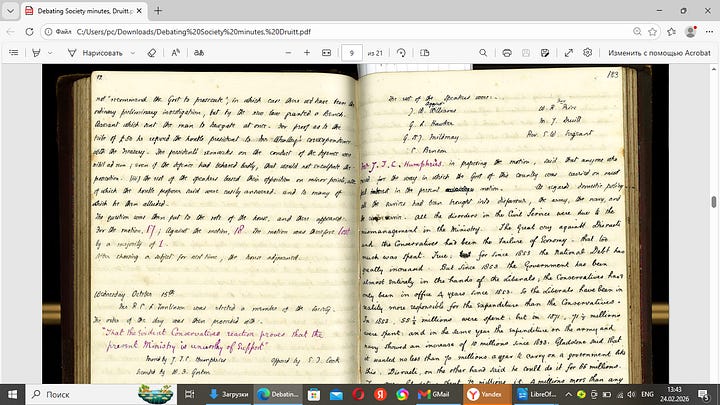 Debating Society minutes, Druitt.pdf
Файл
C:/Users/pc/Downloads/Debating%20Society%20minutes,%20Druitt.pdf
Нарисовать
9 из 21
Изменить с помощью Acrobat
12
not "recommend the Govt to prosecute", in which case there wd have been the
ordinary preliminary investigation, but by the
which sent the man to Newgate at once. For proof as to the
title of he referred the honble president to Mr Whalley's correspondence
with the Treasury. The president's remarks on the conduct of the defence were
even if the defence had behaved badly, that would not exculpate the
prosecution. The rest of the speakers based their opposition on minor points,
of which the honble person said were easily answered. and to many of
which he then alluded.
The question was then put to the vote of the house, and there appeared
For the motion, 17; against the motion, 18. The motion was therefore lost
by a majority of 1.
After choosing a subject for next time, the house adjourned.
Wednesday October 15th
Tomlinson was elected a member of the Society.
The order of the day was then proceeded with.
"That the evident Conservative reaction proves that the
present Ministry is unworthy of support"
Moved by J. T. C. Humphries Opposed by S. J. Cook
Seconded by
183
The rest of the speakers were:-
Against For
J. W. Williams
G. Mr. J. Druitt
G. Mildmay Rev.
J. T. C. Humphries, in proposing the motion, said that anyone who
for the way in which the Govt of this country was carried on must
interest in the present motion. As regards domestic policy
all the services had been brought into disfavour, the army, the navy, and
the service. All the disorders in the Civil Service were due to the
mismanagement in the Ministry. The great cry against Disraeli
and the Conservatives had been the failure of Economy. that too
much was spent. True; for since 1853 the National Debt has
greatly increased. But since 1853 the Government has been
almost entirely in the hands of the Liberals, the Conservatives have
only been in office 4 years since 1853. So the Liberals have been in
reality more responsible for the expenditure than the Conservatives.
In 1853, 55½ millions were spent, but in 1871, 71½ millions
were spent, and in the same year the expenditure on the army and
navy shewed an increase of 10 millions since 1853. Gladstone said that
it wanted no less than 70 millions a year to carry on a government like
this. Disraeli, on the other hand said he could do it for 66 millions.
millions more than any
Поиск
Загрузки
Debatin...
GMail
Yandex
LibreOf...
ENG
13:43
24.02.2026